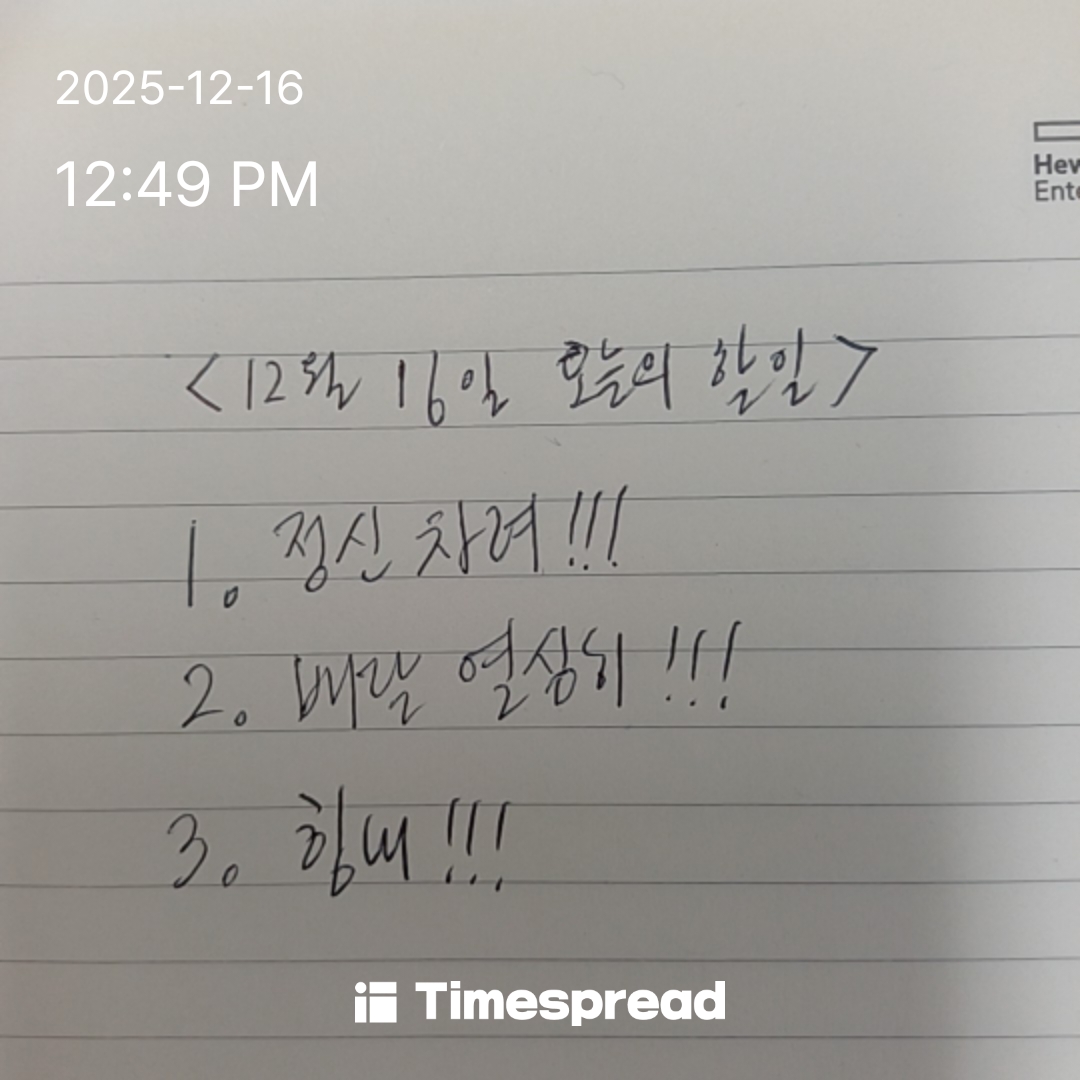 2025-12-16
12:49 PM
Hew
Ente
<12월 16일 오늘의 할일>
1. 정신 차려!!!
2. 배달 열심히!!!
3. 힘내!!!
Timespread